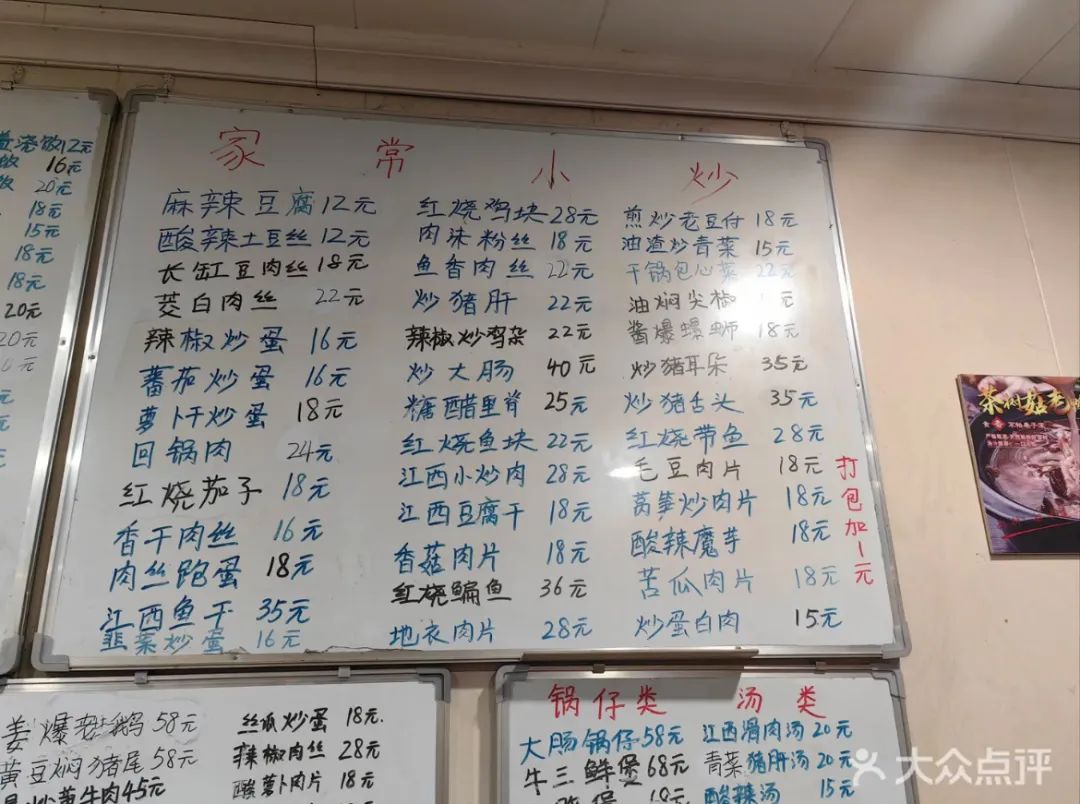 家常小炒
麻辣豆腐 12元
酸辣土豆丝 12元
长缸豆肉丝 18元
茭白肉丝 22元
辣椒炒蛋 16元
蕃茄炒蛋 16元
萝卜干炒蛋 18元
回锅肉 24元
红烧茄子 18元
香干肉丝 16元
肉丝跑蛋 18元
江西鱼干 35元
韭菜炒蛋 16元
红烧鸡块 28元
肉沫粉丝 18元
鱼香肉丝 22元
炒猪肝 22元
辣椒炒鸡杂 22元
炒大肠 40元
糖醋里脊 25元
红烧鱼块 22元
江西小炒肉 28元
江西豆腐干 18元
香菇肉片 18元
红烧鳊鱼 36元
地衣肉片 28元
煎炒老豆付 18元
油渣炒青菜 15元
干锅包心菜 22元
油焖尖椒 元
酱爆螺蛳 18元
炒猪耳朵 35元
炒猪舌头 35元
红烧带鱼 28元
毛豆肉片 18元
莴笋炒肉片 18元
酸辣魔芋 18元
苦瓜肉片 18元
炒蛋白肉 15元
打包加1元
浇饭12元
16元
20元
18元
15元
18元
18元
20元
姜爆 鹅 58元
黄豆焖猪尾 58元
炒萝牛肉 45元
丝瓜炒蛋 18元
辣椒肉丝 28元
酸萝卜肉片 18元
锅仔类
大肠锅仔 58元
牛三鲜堡 68元
汤类
江西滑肉汤 20元
青菜猪肝汤 20元
酸辣汤 15元
茶树菇老
大众点评